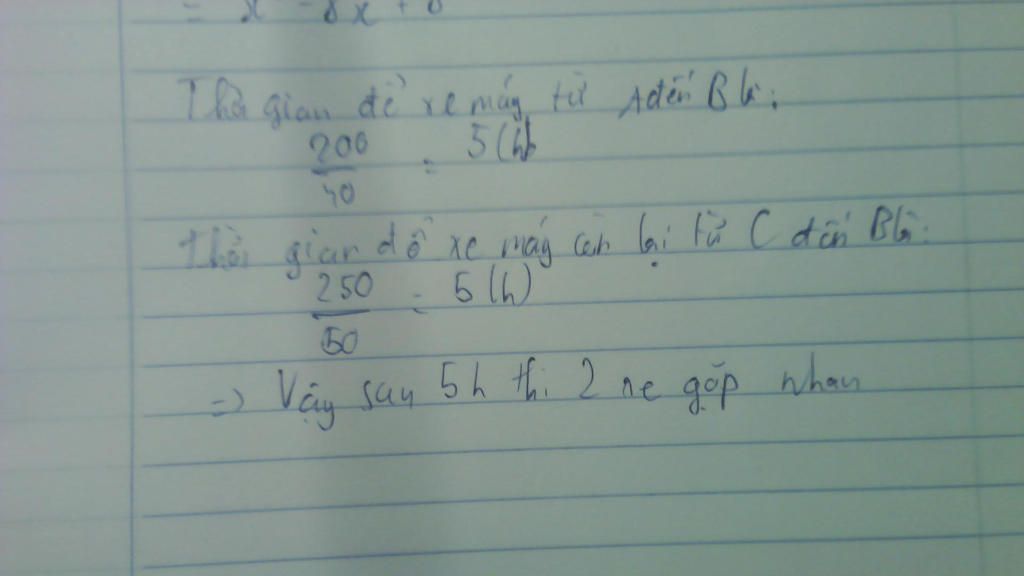 = x - 8x + 6
Thời gian để xe máy từ A đến B là:
200/40 = 5 (h)
Thời gian để xe máy còn lại từ C đến B là:
250/50 = 5 (h)
=> Vậy sau 5h thì 2 xe gặp nhau